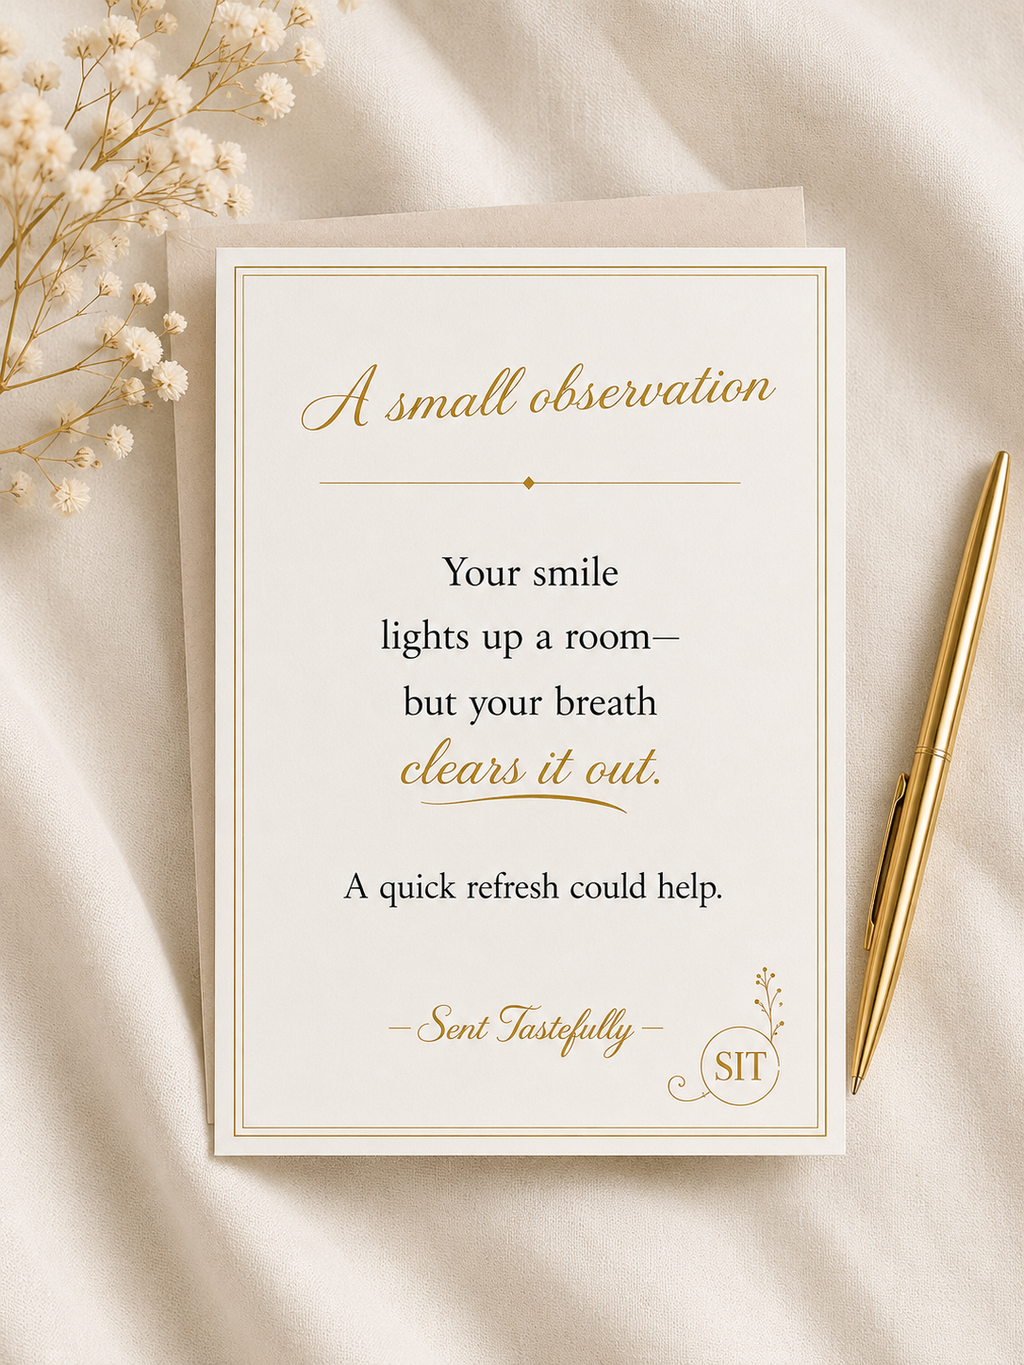 A small observation
Your smile
lights up a room—
but your breath
clears it out.
A quick refresh could help.
– Sent Tastefully –
SIT